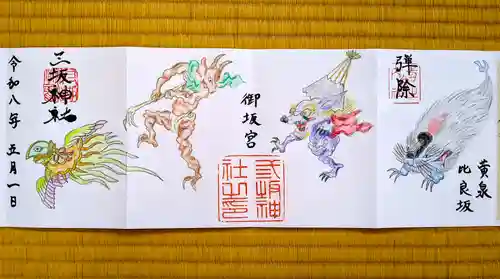 弾除
黄泉
比良坂
御坂宮
弐坂神
社之印
三坂神社
令和八年 五月一日